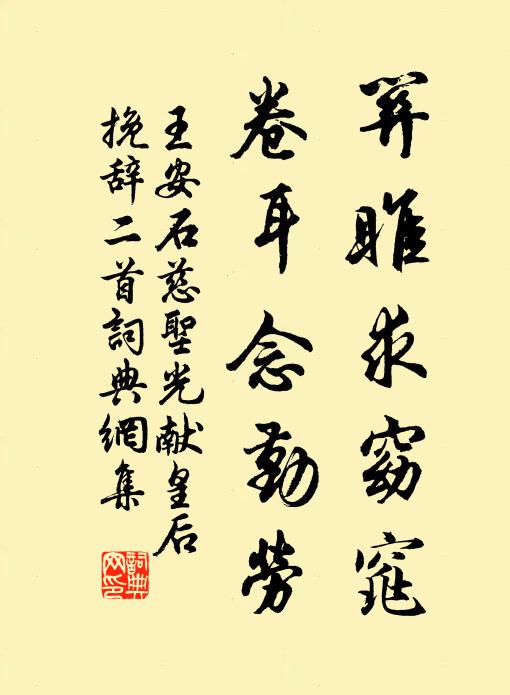 関雎求窈窕
卷耳念勤勞
王安石慈聖光献皇后
挽辞二首詞典網集
詞典网印